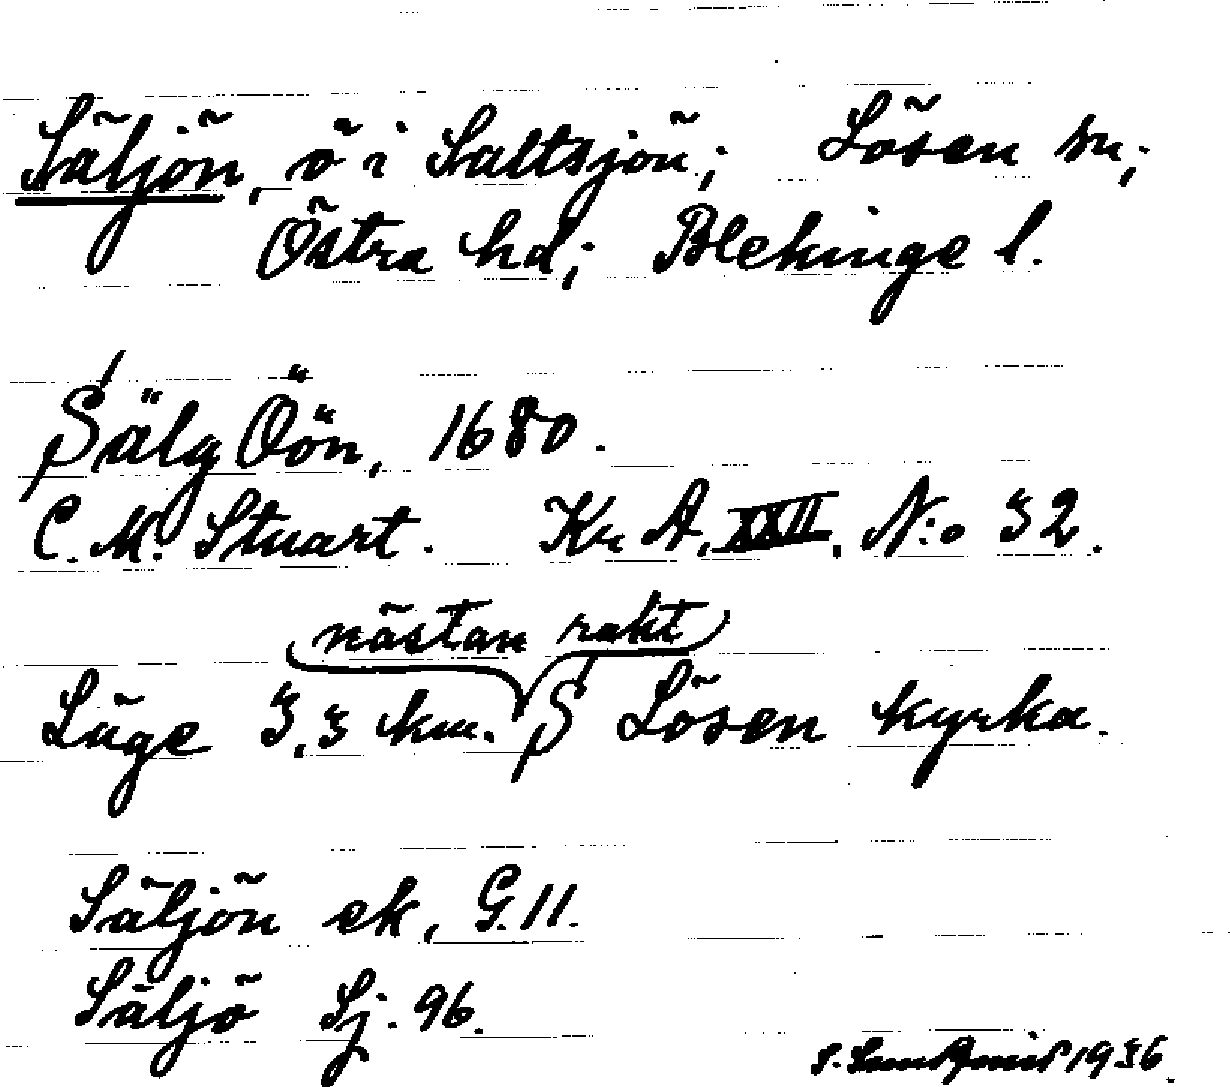 Säljön, ö i Saltsjön; Lösen sn;
Östra hd; Blekinge l.
Sälg Öön, 1680.
C. M. Stuart. Kr. A. XXII, N:o 32.
nästan rakt
Läge 3,3 km. S Lösen kyrka.
Säljön ek, G. 11.
Säljö Sj. 96.
1936.